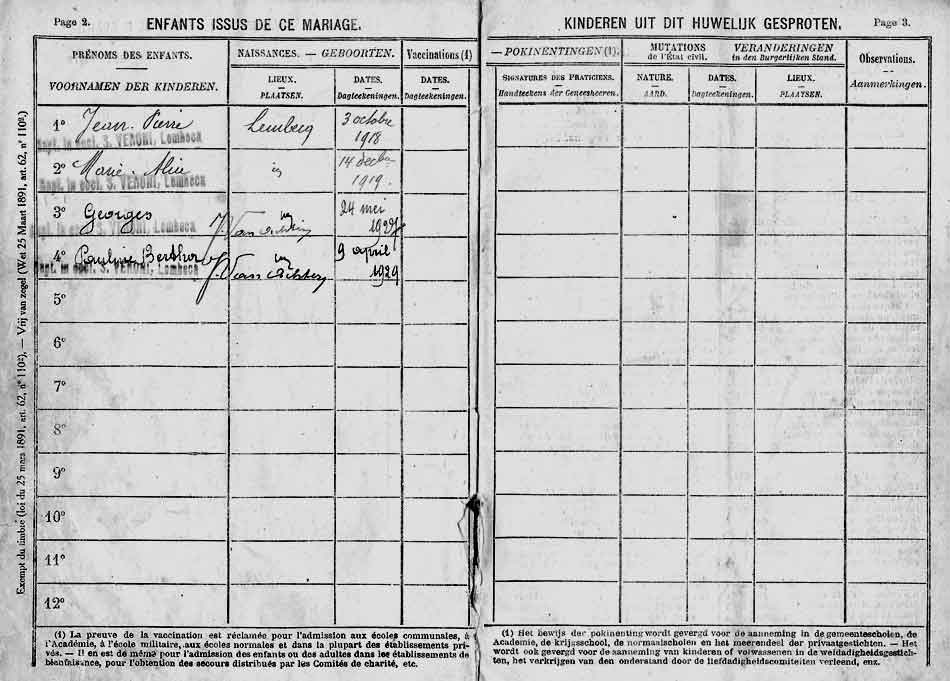 Page 2.
ENFANTS ISSUS DE CE MARIAGE.
PRÉNOMS DES ENFANTS.
VOORNAMEN DER KINDEREN.
NAISSANCES. — GEBOORTEN.
LIEUX.
PLAATSEN.
DATES.
Dagteekeningen.
Vaccinations (1)
DATES.
Dagteekeningen.
1° Jean-Pierre Lembecq 3 octobre
1918
Bapt. in eccl. S. VERONI, Lembeca
2° Marie-Aline 14 décbre
1919.
Bapt. in eccl. S. VERONI, Lembeca
3° Georges 24 mei
in eccl. S. VERONI, Lembeca
4° Pauline 9 april
1929
Bapt. in eccl. S. VERONI, Lembeca
5°
6°
7°
8°
9°
10°
11°
12°
Exempt du timbre (loi du 25 mars 1891, art. 62, n° 110°), — Vrij van zegel (Wet 25 Maart 1891, art. 62, n° 110°)
(1) La preuve de la vaccination est réclamée pour l'admission aux écoles communales, à
l'Académie, à l'école militaire, aux écoles normales et dans la plupart des établissements pri-
vés. — Il en est de même pour l'admission des enfants ou des adultes dans les établissements de
bienfaisance, pour l'obtention des secours distribués par les Comités de charité, etc.
KINDEREN UIT DIT HUWELIJK GESPROTEN.
Page 3.
— POKINENTINGEN (1).
SIGNATURES DES PRATICIENS.
Handteekens der Geneesheeren.
MUTATIONS
de l'État civil.
VERANDERINGEN
in den Burgerlijken Stand.
NATURE.
AARD.
DATES.
Dagteekeningen.
LIEUX.
PLAATSEN.
Observations.
Aanmerkingen.
(1) Het bewijs der pokinenting wordt gevergd voor de aanneming in de gemeentescholen, de
Academie, de krijgsschool, de normaalscholen en het meerendeel der privaatgestichten. — Het
wordt ook gevergd voor de aanneming van kinderen of volwassenen in de weldadigheidsgestich-
ten, het verkrijgen van den onderstand door de liefdadigheidscomiteiten verleend, enz.